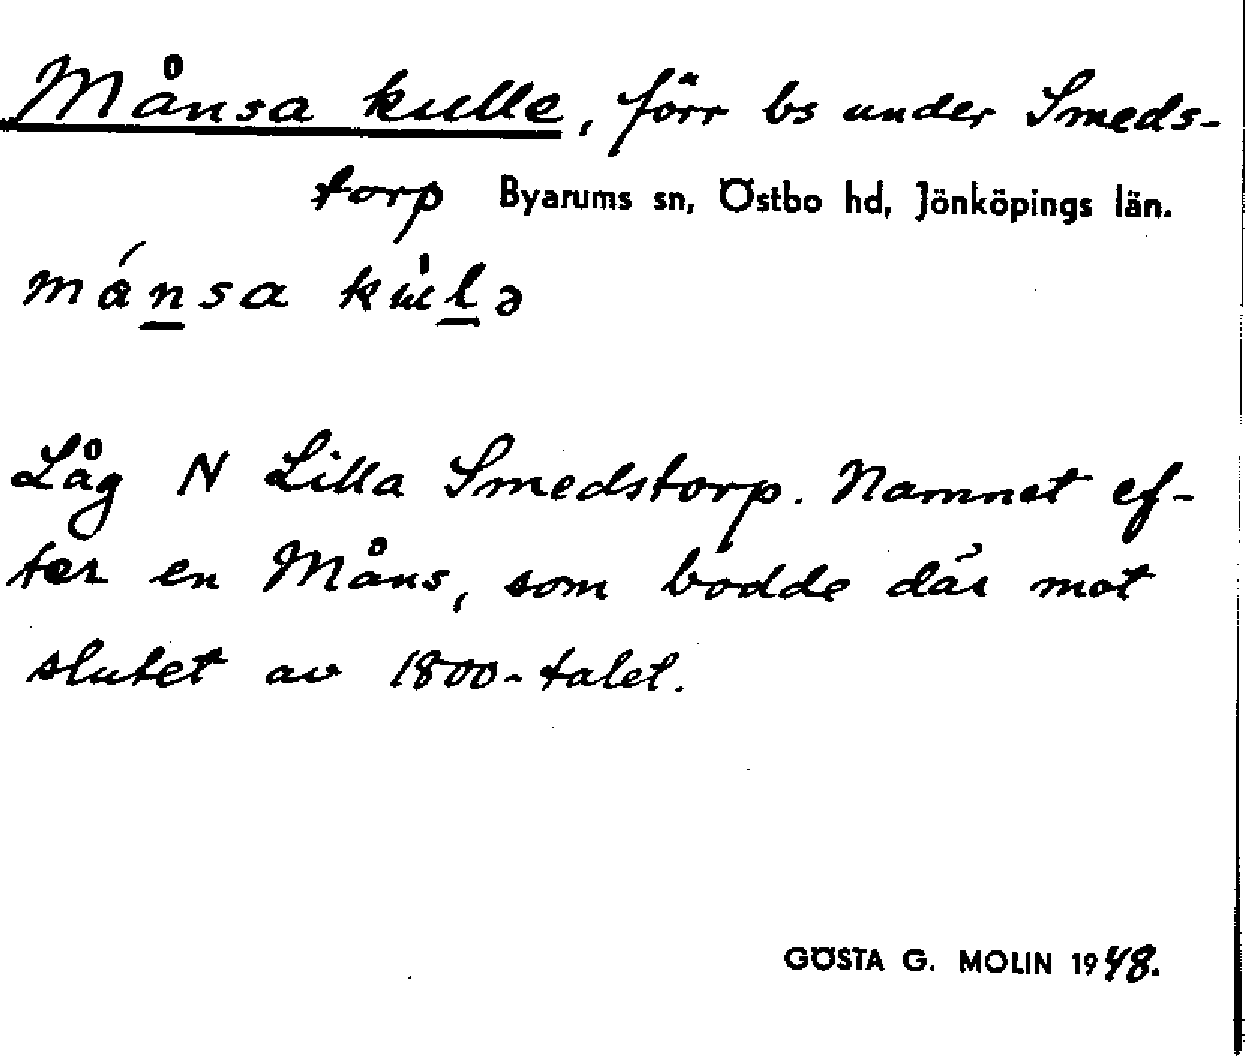 Månsa kulle, förr bs under Smeds-
torp Byarums sn, Östbo hd, Jönköpings län.
mánsa kùlə
Låg N Lilla Smedstorp. Namnet ef-
ter en Måns, som bodde där mot
slutet av 1800-talet.
GÖSTA G. MOLIN 1948.